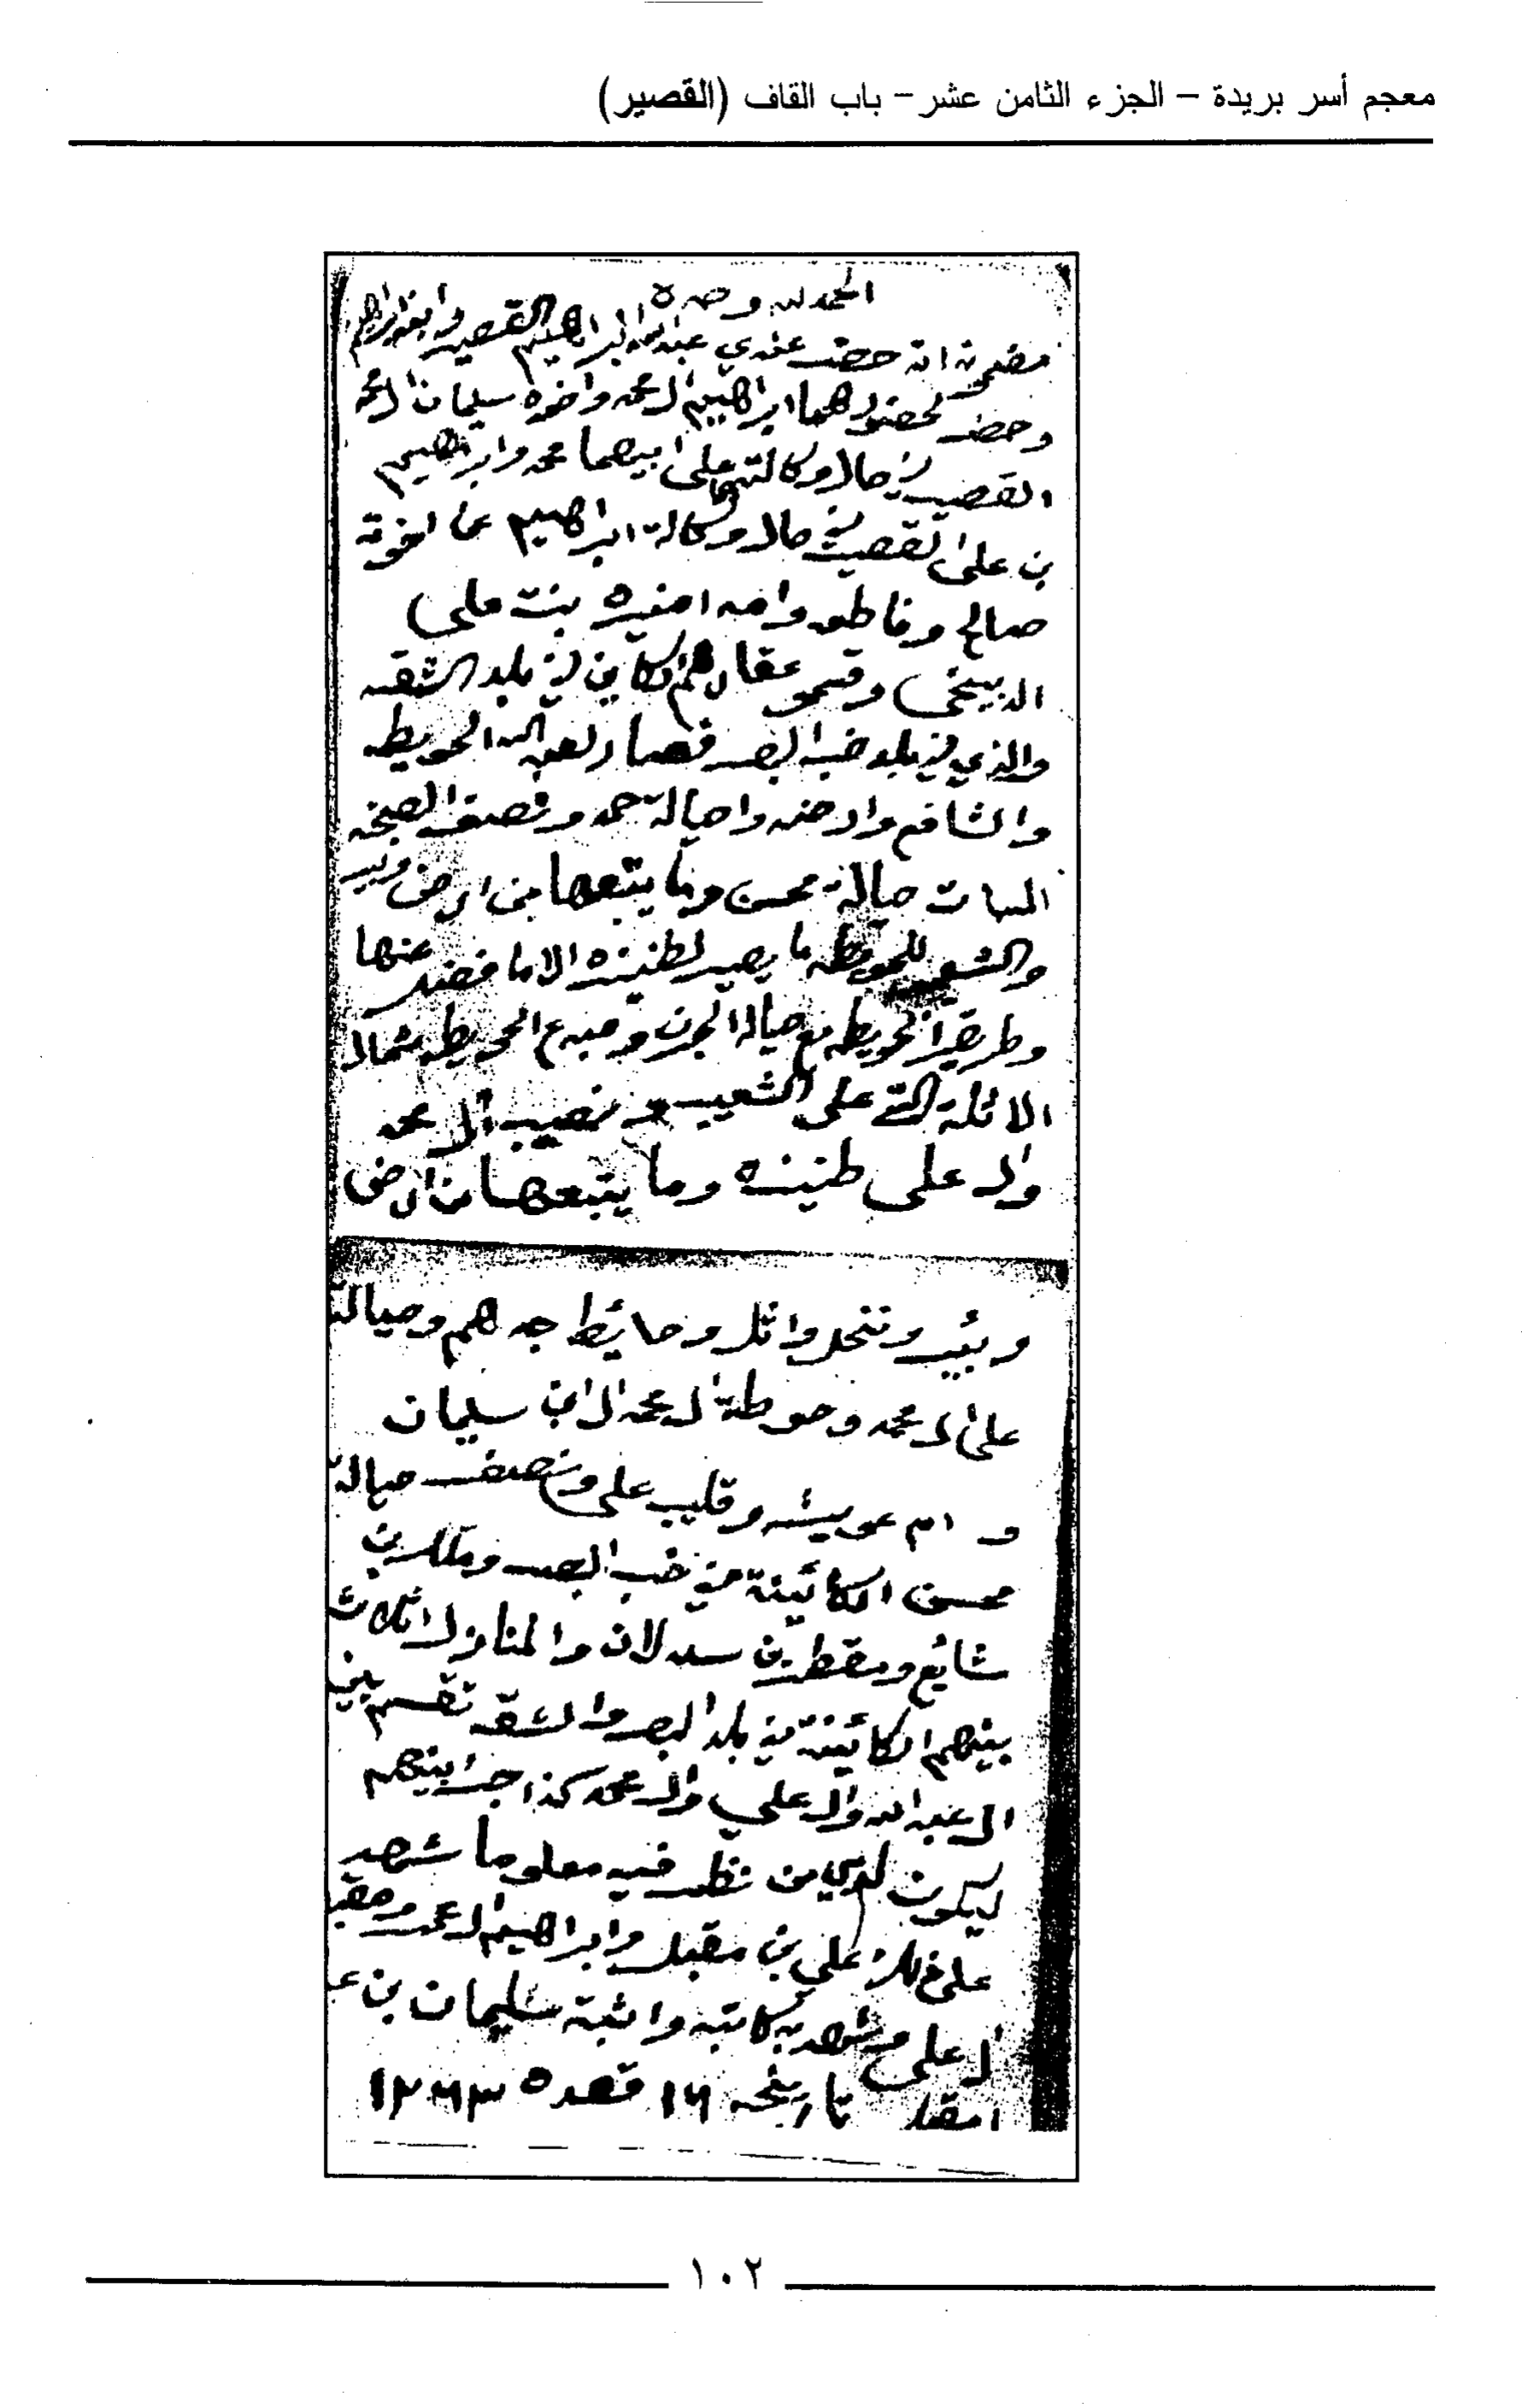 معجم أسر بريدة – الجزء الثامن عشر – باب القاف (القصير)
الحمد لله وحده
مضمونه انه حضر عندي عبدالله البراهيم القصير وابنه ابراهيم
وحضر لحضورهما ابراهيم ال محمد واخوه سليمان ال محمد
القصير في حال وكالتهما على ابيهما محمد وابراهيم
بن علي القصير في حال وكالة ابراهيم عن اخوته
صالح وفاطمه وامه منيره بنت علي
الدبيخي وقسمو عقارهم الكاين في بلد الشقه
والذي في بلد خب البصر فصار لعبدالله الحويطه
والشافع وارضه واحيالة حمد ونصف
حيالة محسن وما يتبعها من ارض وبير
للحويطه ما يصير لطنينزه الا ما فضل عنها
وطريق الحويطه مع حيالة الجرن الحويطه شمال
الاثلة التي على الشعيب ونصيب ال محمد
وال علي طنينزه وما يتبعها من ارض
وبئير ونخل واثل وحايط جدهم وحيالة
علي ال محمد وحوطة ال محمد ال ابن سليمان
و ام عويشه وقليب علي ونصف حيالة
محسن الكائينة في خب البصر وملك بن
شايع ومقطر بن سدلان والمنازل اثلاث
بينهم الكائينة في بلد البصر والشقه تقسم بين
ال عبدالله وال علي وال محمد كذا جرى بينهم
ليكون لدي من نظر فيه معلوما شهد
على ذلك علي بن مقبل وابراهيم ال محمد
ال علي وشهد به كاتبه واثبته سليمان بن
تاريخه ١٦ قعده ١٢٦٣
١٠٢